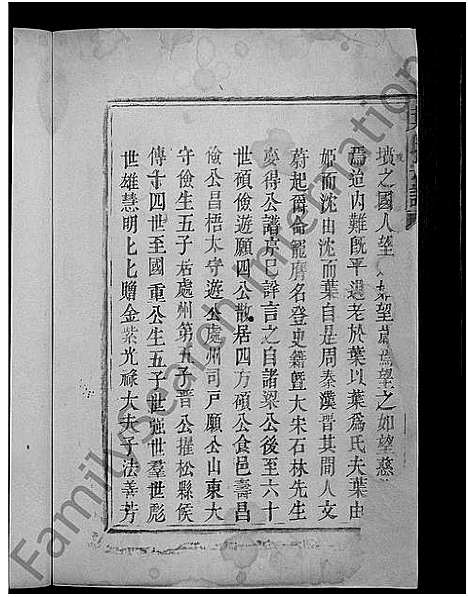 墳之國人望望焉望之如望慈
焉迨內難既平退老於葉以葉爲氏夫葉由
姬而沈由沈而葉自是周秦漢晋其間人文
蔚起爵命寵膺名登史籍曁大宋石林先生
變得公譜亦已詳言之自諸梁公後至六十
世碩儉遊願四公散居四方碩公食邑壽昌
儉公昌梧太守遊公處州司戶願公山東大
守儉生五子居處州第五子晋公擢松縣侯
傳十四世至國重公生五子世強世羣世彪
世雄慧明匕匕贈金紫光祿大夫子法善芳
FamilySearch International